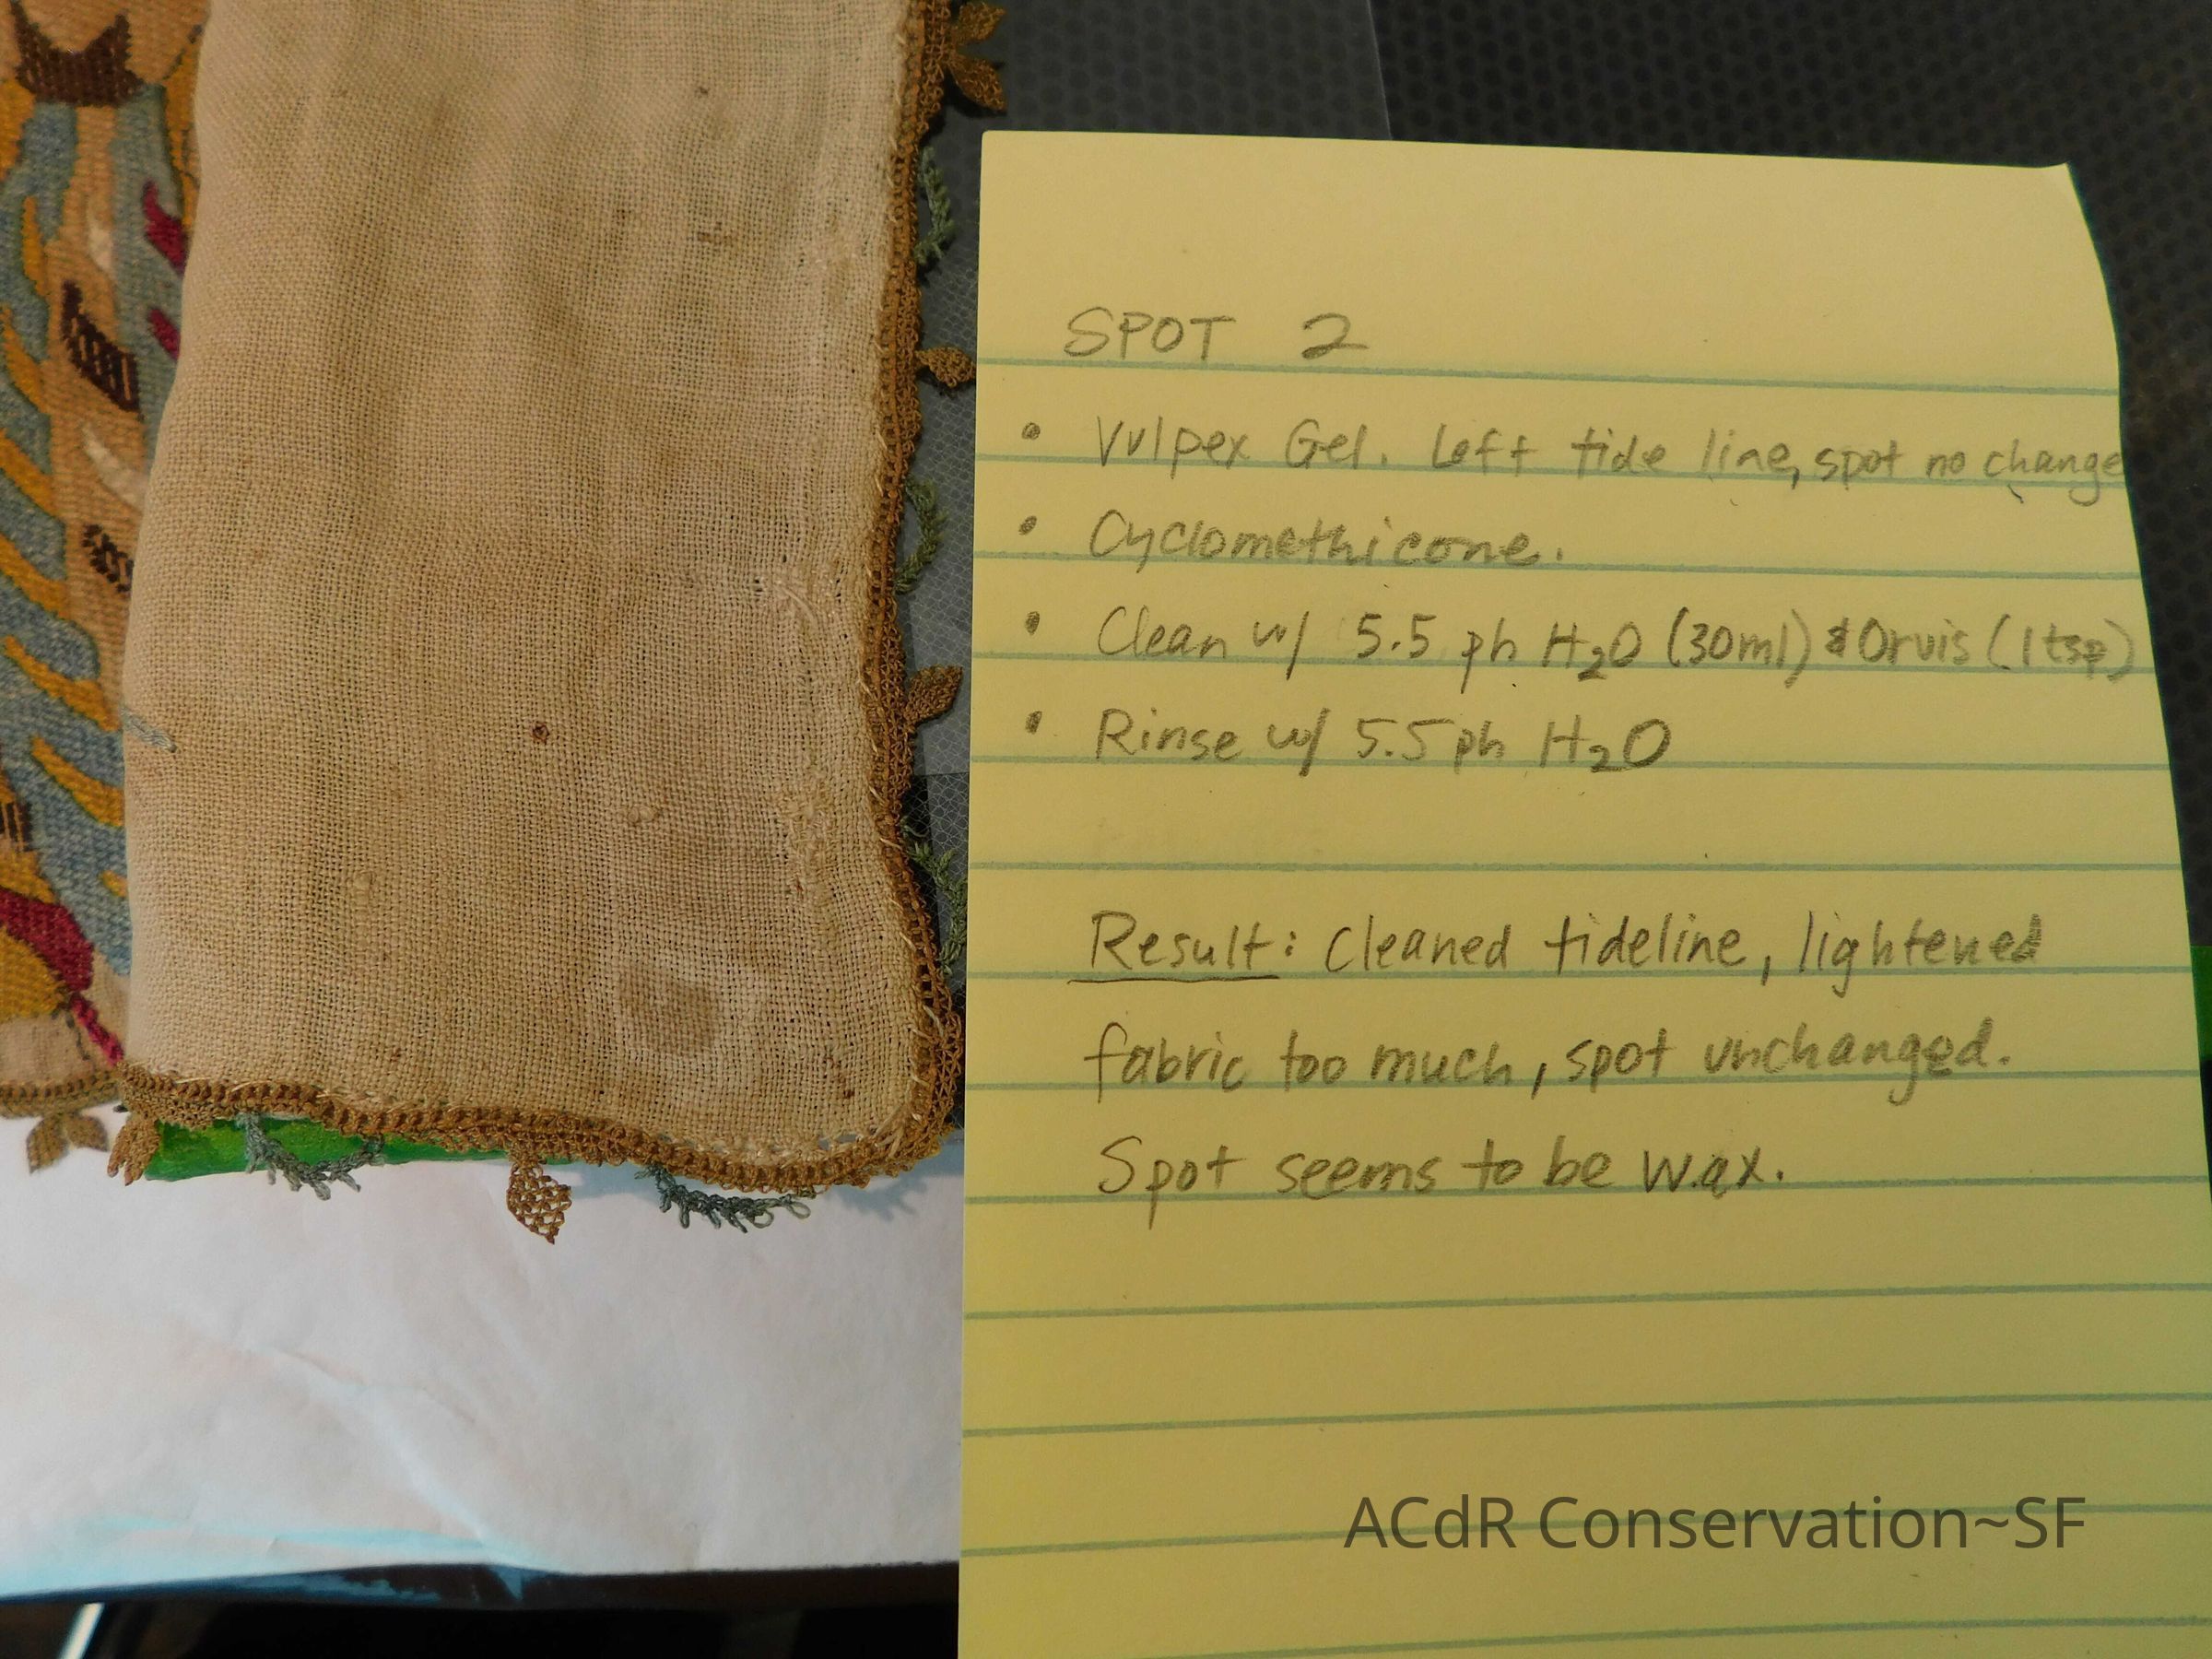 SPOT 2
• Vulpex Gel. Left tide line, spot no change
• Cyclomethicone.
• Clean w/ 5.5 ph H₂O (30ml) & Orvis (1 tsp)
• Rinse w/ 5.5 ph H₂O
Result: Cleaned tideline, lightened
fabric too much, spot unchanged.
Spot seems to be wax.
ACdR Conservation~SF